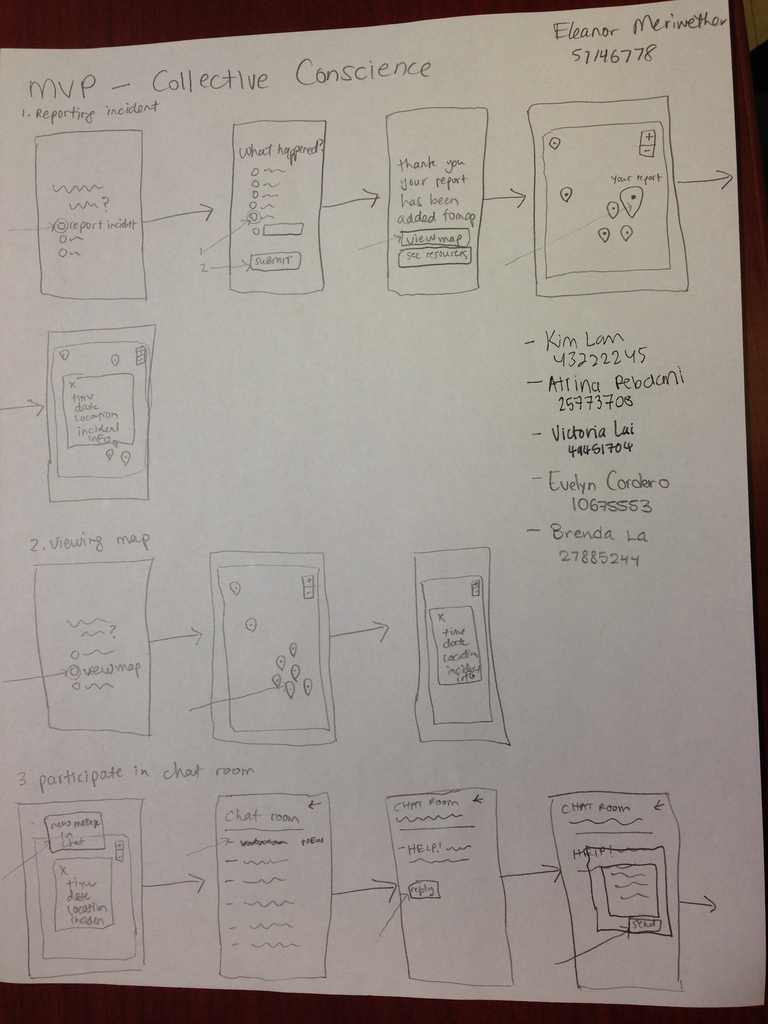 Eleanor Meriwether
57146778
MVP - Collective Conscience
1. Reporting incident
?
report incident
What happened?
1
2
SUBMIT
thank you
your report
has been
added to map
view map
see resources
+
-
Your report
Y
X
time
date
location
incident
info
- Kim Lam
43222245
- Atrina Pebdani
25773708
- Victoria Lai
49451704
- Evelyn Cordero
10675553
- Brenda La
27885244
2. Viewing map
?
view map
+
-
X
time
date
location
incident
info
3. participate in chat room
new message
in
chat
X
time
date
location
inciden
Chat room ←
NEW
CHAT ROOM ←
- HELP!
reply
CHAT ROOM ←
HELP!
send